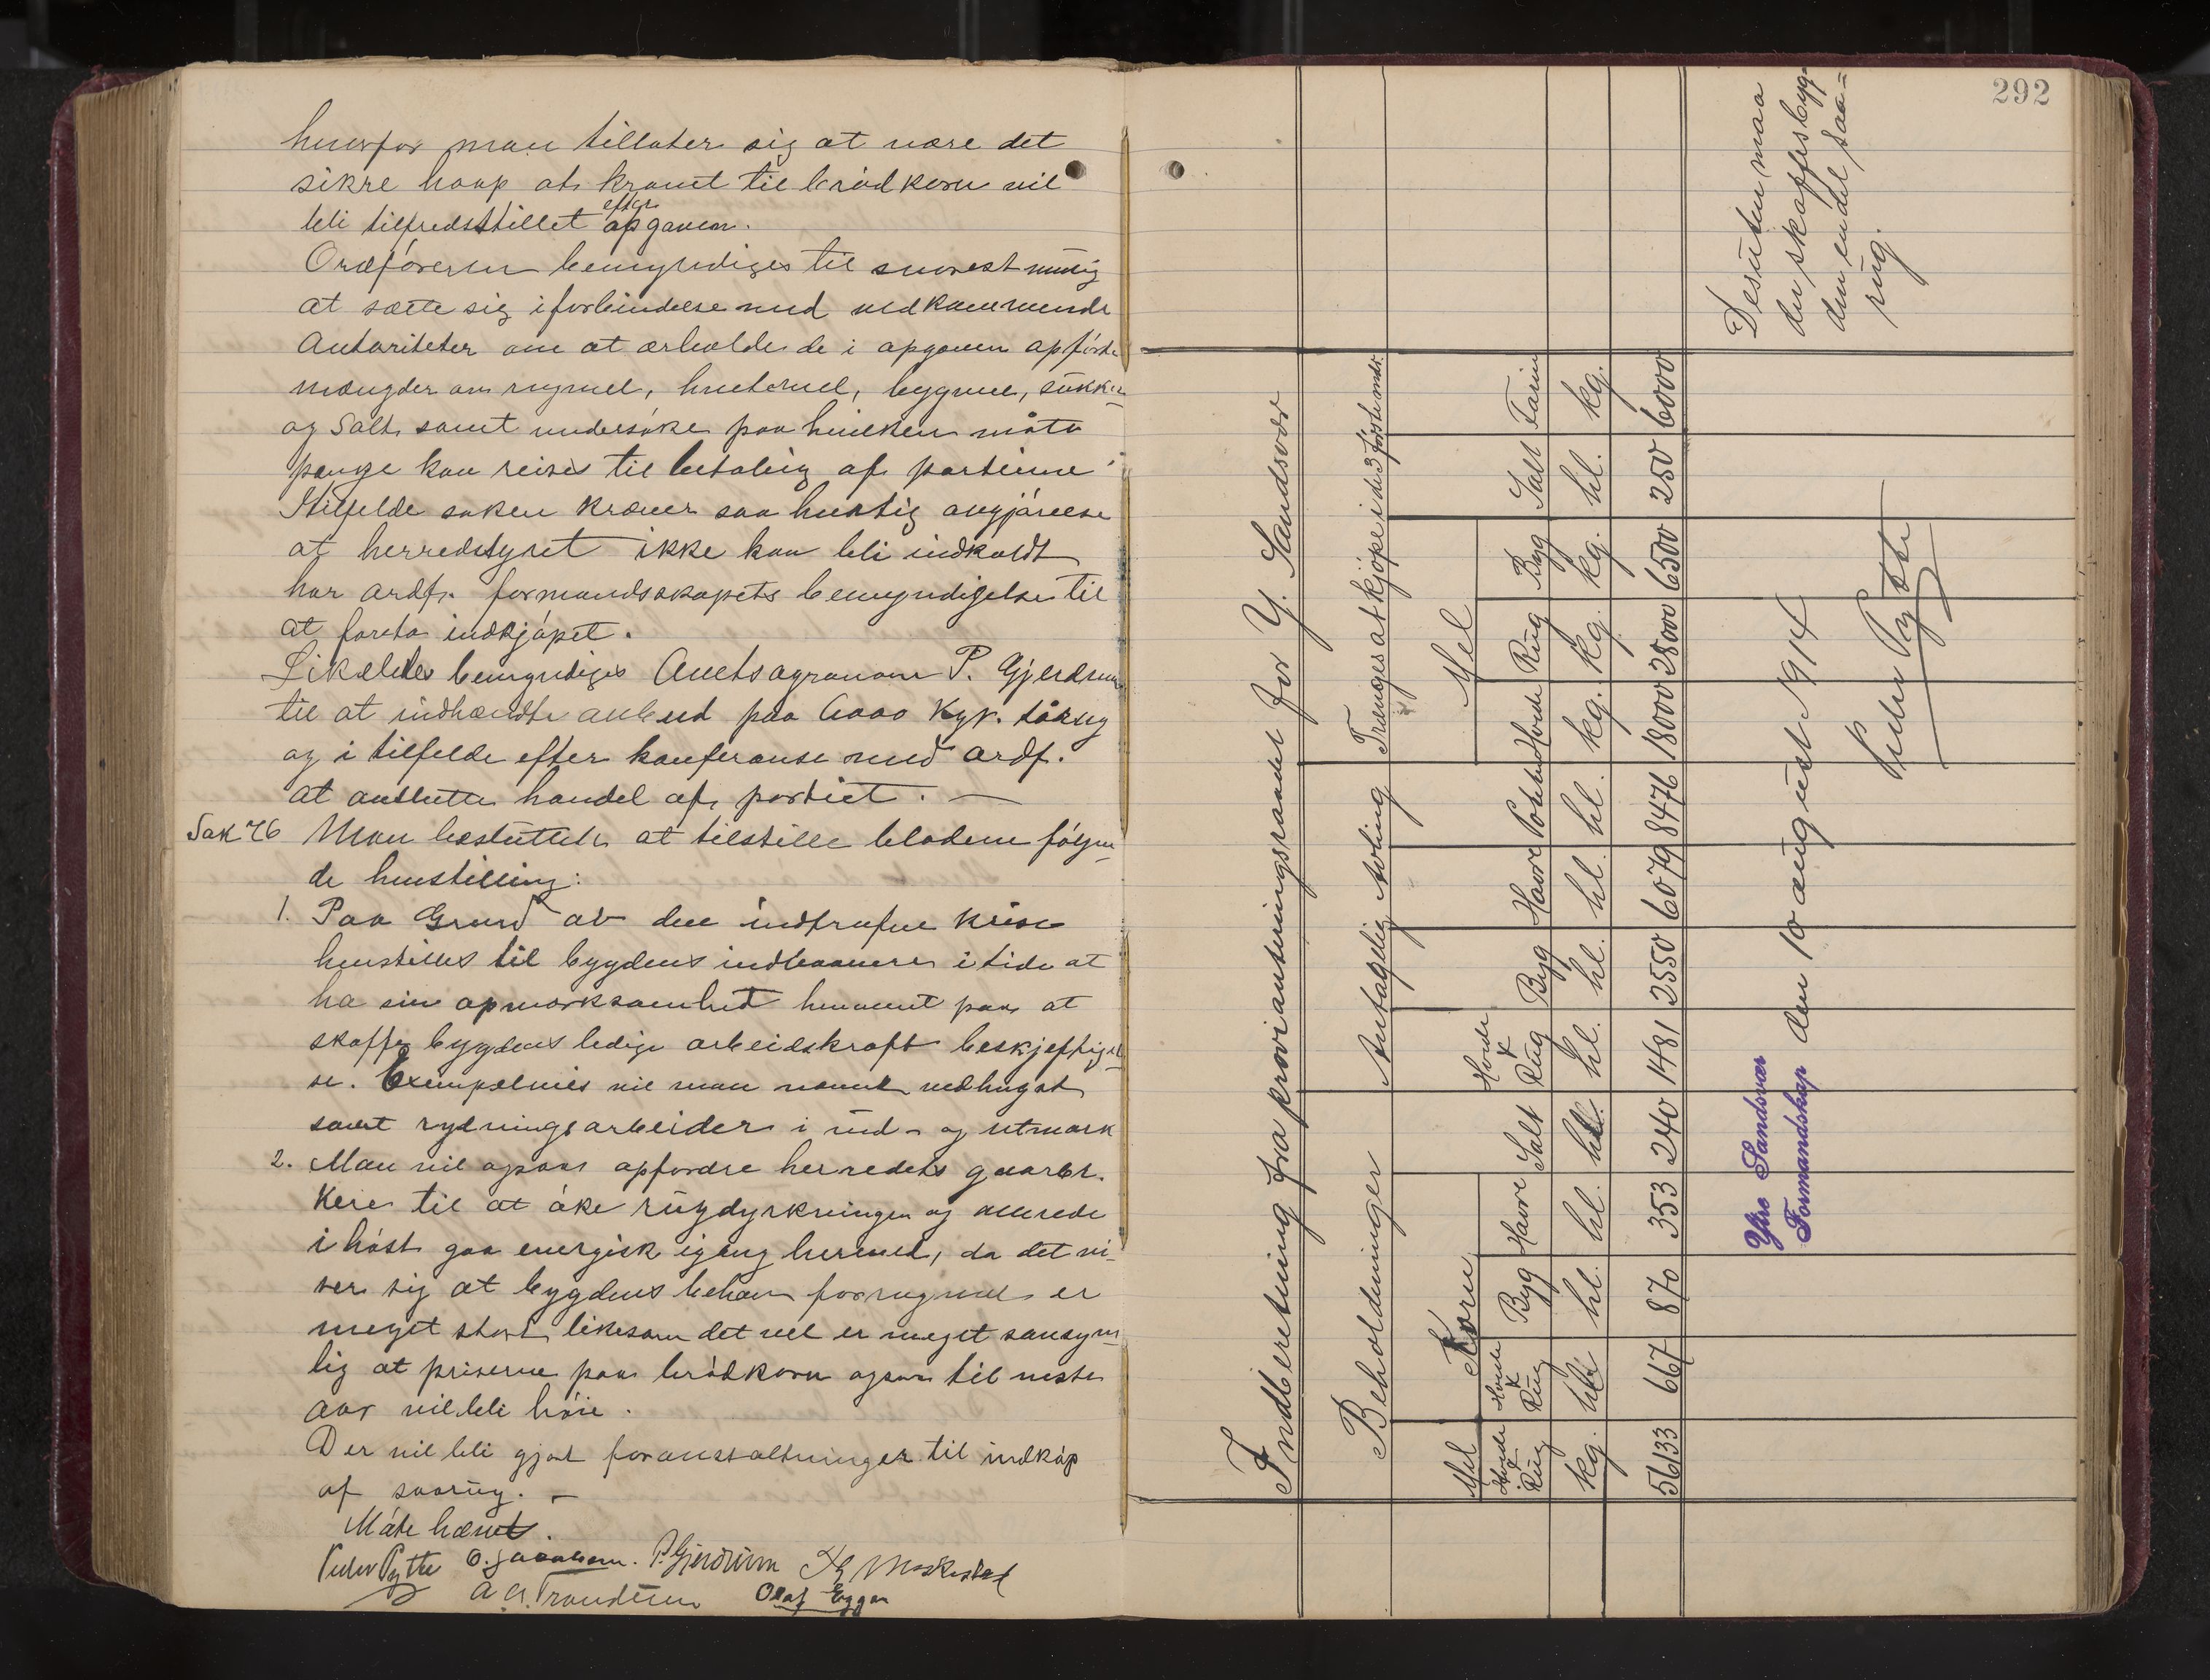 hvorfor man tillater sig at nære det
sikre haap at kravet til brödkorn vil
bli tilfredsstillet efter opgaven.
Ordföreren bemyndiges til snarest mulig
at sætte sig i forbindelse med vedkommende
Autoriteter om at erholde de i opgaven opförte
mængder av rugmel, hvetemel, bygmel, sukker
og Salt samt undersöke paa hvilken måte
penge kan reises til betaling af partierne
I tilfelde saken kræver saa hurtig avgjörelse
at herredstyret ikke kan bli indkaldt
har ordf. formandsskapets bemyndigelse til
at foreta indkjöpet.
Likeledes bemyndiges Amtsagronom P. Gjerdrum
til at indhændte anbud paa 6000 Kgr. sårug
og i tilfelde efter konferanse med ordf.
at avslutte handel af partiet. —
Sak 76 Man besluttede at tilstille bladene fölgen-
de henstilling:
1. Paa Grund av den indtrufne krise
henstilles til bygdens indbaanere i tide at
ha sin opmerksomhed henvent paa at
skaffe bygdens ledige arbeidskraft beskjeftigel-
se. Exempelvis vil man nævne vedhugst
samt rydningsarbeider i ind- og utmark
2. Man vil ogsaa opfordre herredets gaarbr.
kere til at öke rugdyrkningen og allerede
i höst gaa energisk igang hermed, da det vi-
ser sig at bygdens behov for rugmel er
meget stort likesom det vel er meget sansyn-
lig at priserne paa brödkorn ogsaa til neste
aar vil bli höie.
Der vil bli gjort foranstaltninger til indköp
af saarug. —
Möte hævet.
Peder Pytte O. Jacobsen. P. Gjerdrum
A A. Trondsen Olaf Eggar
292
Indberetning fra proviantningsraadet for Y. Sandsvær
Beholdninger Antagelig Avling Trænges at kjöpe i de 3 förste mdr.
Mel Korn Mel
Hvede & Rug Hvede & Rug Byg Havre Salt Hvede & Rug Byg Havre Poteter Hvede Rug Byg Salt Farin
kg. hl. hl. hl. hl. hl. hl. hl. hl. kg. kg. kg. hl. kg.
56133 667 870 353 240 1481 2550 6079 8476 18000 28000 6500 250 6000
Desuten maa
der skaffes byg-
den endel saa=
rug.
Ytre Sandsvær
Formandskap den 10 august 1914
Peder Pytte